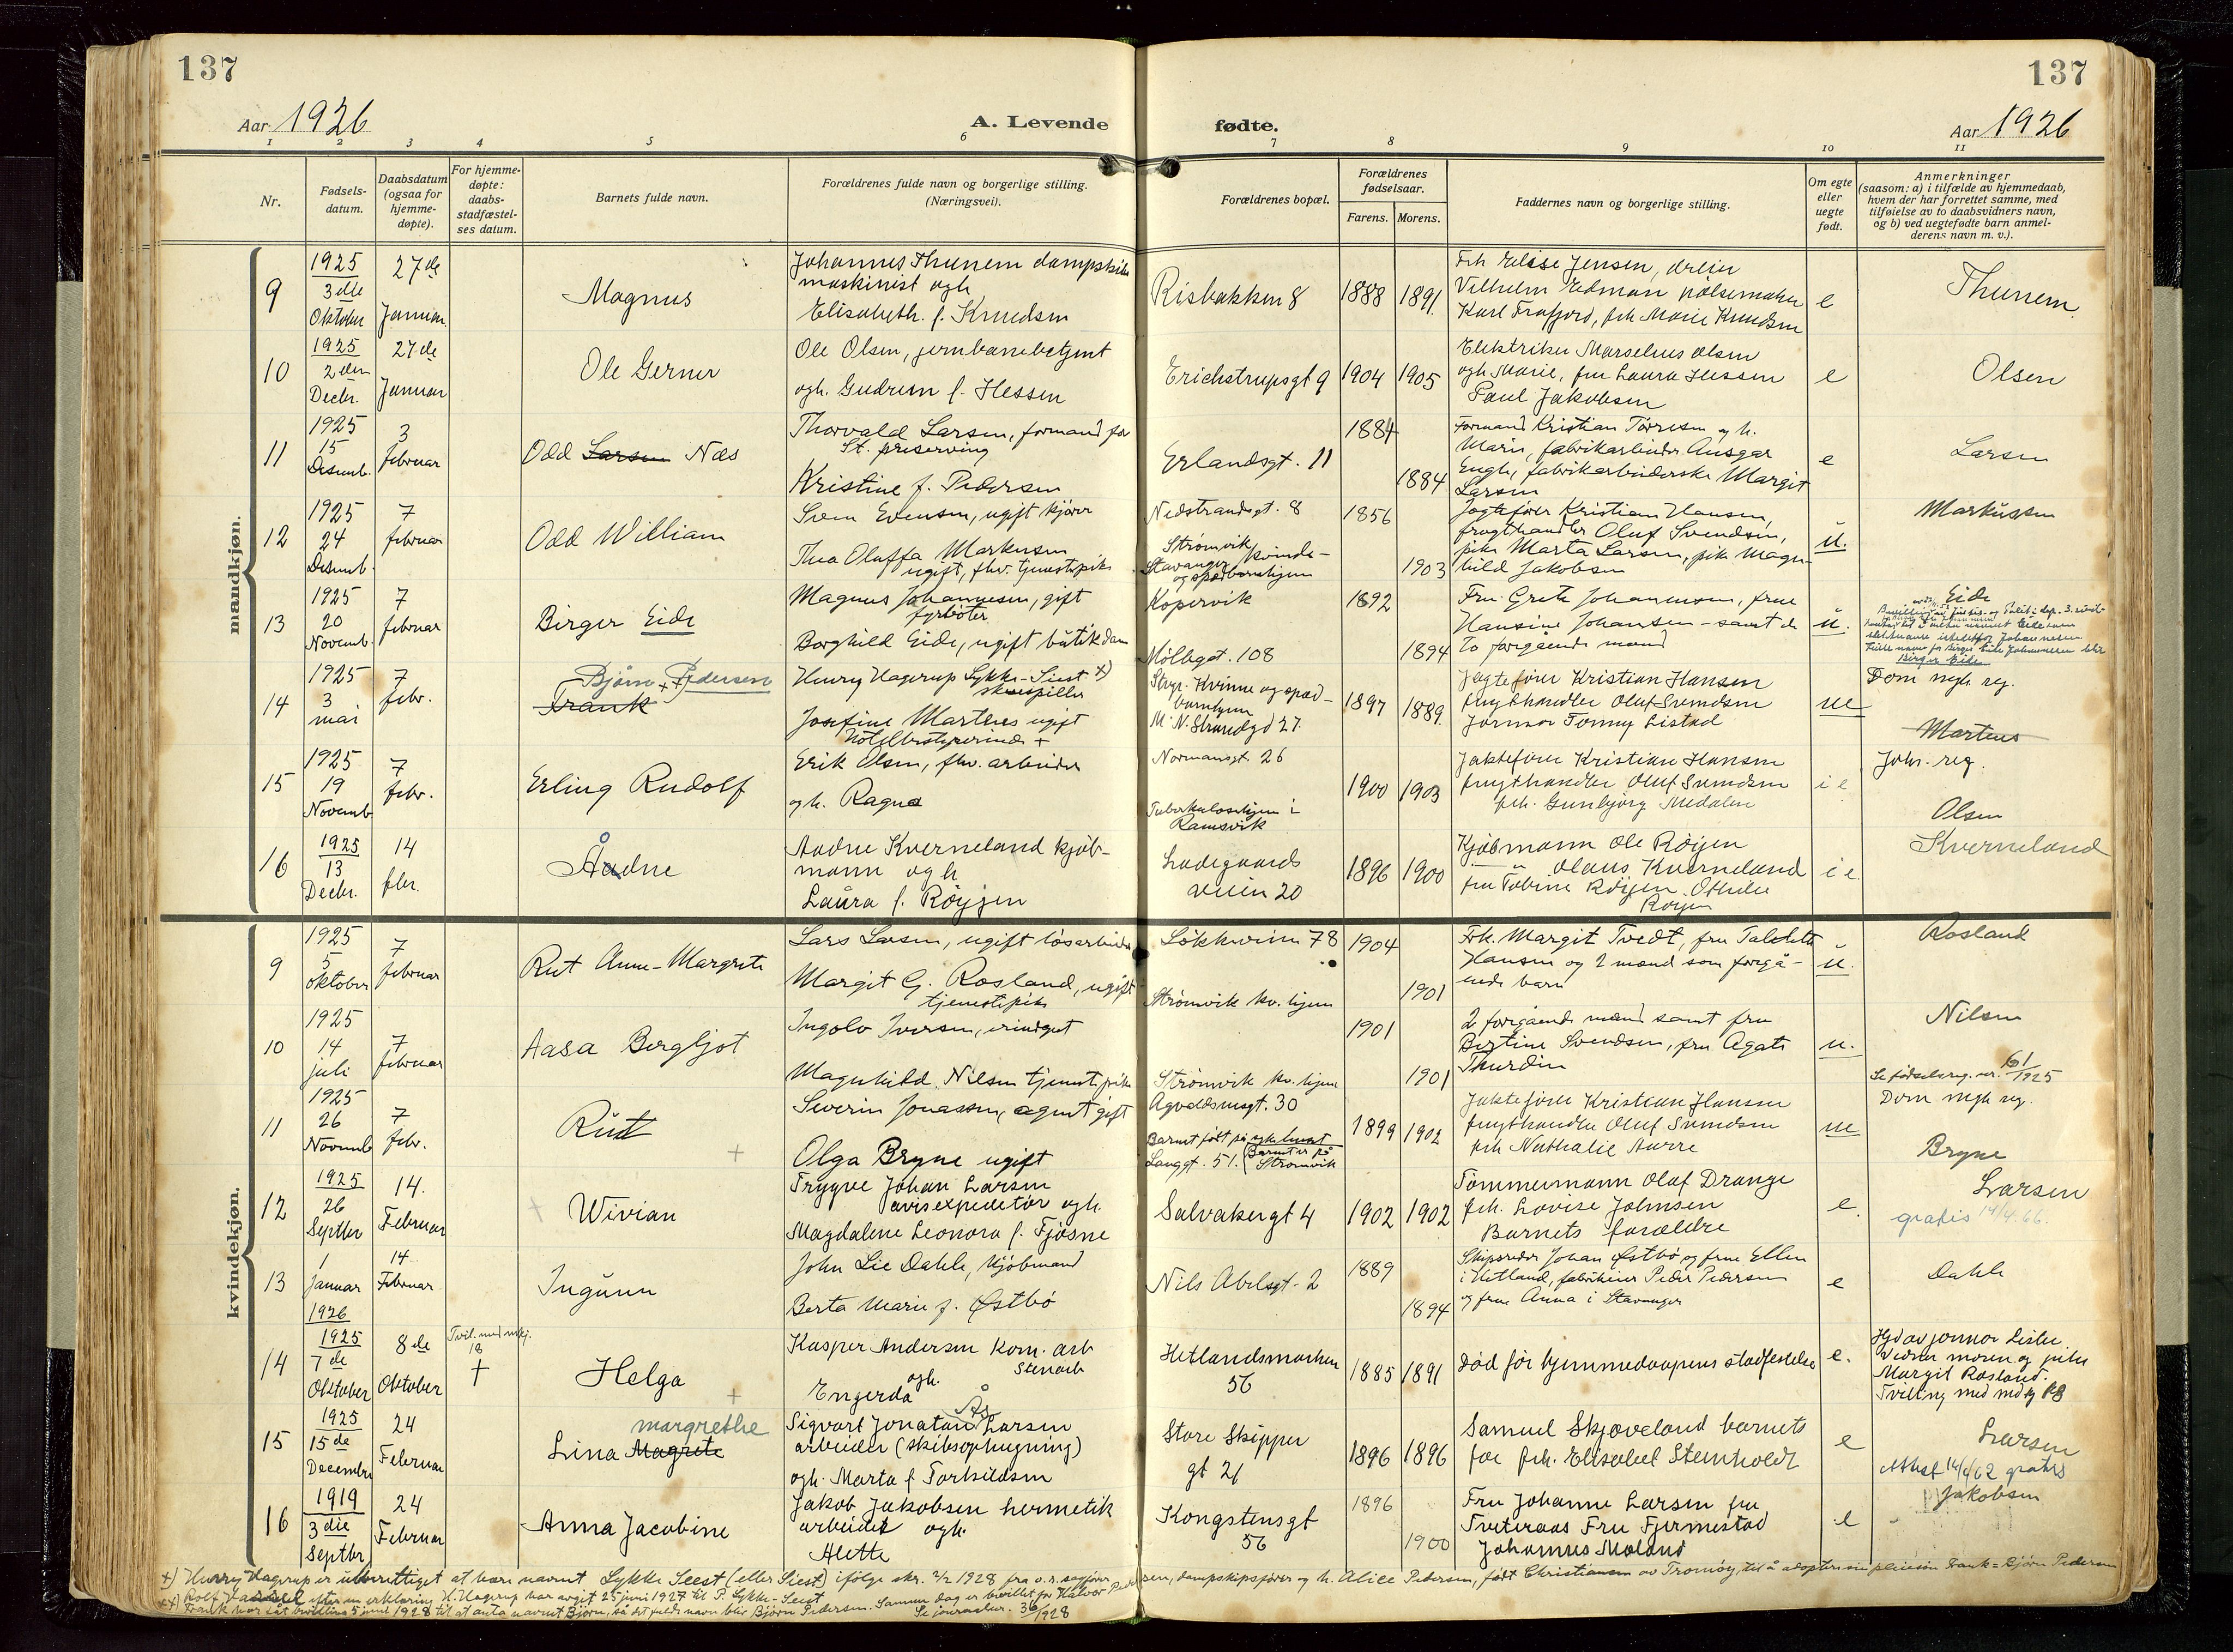 137
137
Aar 1926
A. Levende fødte.
Aar 1926
1 2 3 4 5 6 7 8 9 10 11
Nr.
Fødsels-
datum.
Daabsdatum
(ogsaa for
hjemme-
døpte).
For hjemme-
døpte:
daabs-
stadfæstel-
ses datum.
Barnets fulde navn.
Forældrenes fulde navn og borgerlige stilling.
(Næringsvei).
Forældrenes bopæl.
Forældrenes
fødselsaar.
Farens. Morens.
Faddernes navn og borgerlige stilling.
Om egte
eller
uegte
født.
Anmerkninger
(saasom: a) i tilfælde av hjemmedaab,
hvem der har forrettet samme, med
tilføielse av to daabsvidners navn,
og b) ved uegtefødte barn anmel-
derens navn m. v.).
mandkjøn.
9
1925
3die
Oktober
27de
Januar
Magnus
Johannes Thunem dampskibs
maskinist ogh
Elisabeth f. Knudsen
Risbakken 8
1888 1891
Frk Elise Jensen,
Vilhelm Edman pølsemaker
Karl Frafjord, frk Marie Knudsen
e
Thunem
10
1925
2den
Decbr.
27de
Januar
Ole Gerner
Ole Olsen, jernbanebetjent
ogh. Gudrun f. Hessen
Erichstrupsgt 9
1904 1905
Elektriker Marselius Olsen
ogh Marie, fru Laura Hessen
Paul Jakobsen
e
Olsen
11
1925
15
Desemb.
3
februar
Odd Larsen Næs
Thorvald Larsen, formand for
St. preserving
Kristine f. Pedersen
Erlandsgt. 11
1884
1884
Formand Kristian Tørresen og h.
Marie, fabrikarbeider Ansgar
Engh, fabrikarbeiderske Margit
Larsen
e
Larsen
12
1925
24
Desemb.
7
februar
Odd William
Sven Evensen, ugift kjører
Thea Oluffa Markusen
ugift, fhv. tjenestepike
Nedstrandsgt. 8
Strømvik
Stavanger kvinde-
og spedbarnshjem
1856
1903
Jagtefører Kristian Hansen,
frugthandler Oluf Svendsen,
pike Marta Larsen, pike Magn-
hild Jakobsen
u.
Markussen
13
1925
20
Novemb.
7
februar
Birger Eide
Magnus Johannesen, gift
fyrbøter
Borghild Eide, ugift butikdam
Kopervik
Møllegt. 108
1892
1894
Fru Grete Johannesen, frue
Hansine Johansen - samt de
to forgående mænd
u.
Eide
Birger Eide
14
1925
3
mai
7
febr.
Bjørn Pedersen
Frank ++)
Henry Hagerup Lykke-Siest +)
skuespiller
Josefine Martens ugift
Hotelbestyrerinde +
Stvgr. Kvinne og sped-
barnhjem
M. N. Strandgd 27.
1897 1889
Jagtefører Kristian Hansen
frugthandler Oluf Svendsen
Jormor Tonny Listad
ue
Dom megh. reg.
Martens
15
1925
19
Novemb
7
febr.
Erling Rudolf
Erik Olsen, fhv. arbeider
og h. Ragna
Normansgt. 26
Tuberkulosehjem i
Ramsvik
1900 1903
Jaktefører Kristian Hansen
frugthandler Oluf Svendsen
frk. Gunbjørg Medalen
i e
Johs. reg.
Olsen
16
1925
13
Decbr.
14
febr.
Å
Aadne
Aadne Kverneland kjøb-
mann ogh
Laura f. Røyjen
Ladegaards
veien 20
1896 1900
Kjøbmann Ole Røijen
— " — Olaus Kverneland
fru Tobine Røijen. Othilie
Røijen
i e
Kverneland
kvindekjøn.
9
1925
5
oktober
7
februar
Rut Anne-Margrete
Lars Larsen, ugift løsarbeider
Margit G. Rosland, ugift
tjenestepike
Løkkeveien 78
Strømvik kv. hjem
1904
1901
Frk. Margit Tvedt, fru Talette
Hansen og 2 mænd som forgå-
ende barn
u.
Rosland
10
1925
14
juli
7
februar
Aasa Bergljot
Ingolv Iversen, visergut
Magnhild Nilsen tjenestepike
Strømvik kv. hjem
1901
1901
2 forgående mænd samt fru
Bertine Svendsen, fru Agate
Thurdin
u.
Nilsen
Se fødselsreg. nr. 61/1925
11
1925
26
Novemb
7
febr.
Rut
Severin Jonassen, agent gift
Olga Bryne ugift
Agvaldsensgt. 30
Barnet født på sykehuset
Langgt. 51. (Barnet er på
Strømvik
1899 1902
Jaktefører Kristian Hansen
frugthandler Oluf Svendsen
frk Nathalie Aarre
ue
Dom megh reg.
Bryne
12
1925
26
Septbr
14.
Februar
Wivian
Trygve Johan Larsen
avisexpeditør ogh.
Magdalene Leonora f. Fjøsne
Salvakergt 4
1902 1902
Tømmermann Olaf Drange
frk. Lovise Johnsen
Barnets forældre
e.
Larsen
gratis 14/4.66.
13
1
Januar
1926
14
Februar
Ingunn
John Lie Dahle, kjøbmand
Berta Marie f. Østbø
Nils Abelsgt. 2
1889
1894
Skipsreder Johan Østbø og frue Ellen
i Hetland, fabrikeier Peder Pedersen
og frue Anna i Stavanger
e
Dahle
14
1925
7de
Oktober
8de
Oktober
Tvil. med mkj.
18
†
Helga
Kasper Andersen kom. arb
Stenarb
ogh.
Engerda
Hetlandsmarken
56
1885 1891
død før hjemmedaapens stadfestelse
e.
Hjd av jormor Lislie.
Vidner moren og pike
Margit Rosland.
Tvilling med mdkj 18
15
1925
15de
Decembr
24
Februar
margrethe
Lina Magrete
Sigvart Jonatan Larsen
arbeider (skibsophugning)
ogh. Marta f Torkildsen
Store Skipper
gt 21
1896 1896
Samuel Skjæveland barnets
far frk. Elisabet Stenholdt
e
Larsen
Attest 14/4/62 gratis
16
1919
3die
Septbr
24
Februar
Anna Jacobine
Jakob Jakobsen hermetik
arbeider ogh.
Alette
Kongstensgt
56
1896
1900
Fru Johanne Larsen fru
Tveteraas Fru Fjermestad
Johannes Moland
e
Jakobsen
+) Henry Hagerup er uberettiget at bære navnet Lykke Seest (eller Siest) ifølge skr. 2/2 1928 fra o.r. sagfører
Rolf efter en erklæring H. Hagerup har avgit 25 juni 1927 til P. Lykke-Seest
++) Frank har fåt bevilling 5 juni 1928 til at anta navnet Bjørn, så det fulde navn blir Bjørn Pedersen. Samme dag er bevillet for Halvor Pedersen, dampskipsfører og h. Alice Pedersen, født Christiansen av Tromøy, til å adoptere sin pleiesøn Frank = Bjørn Pedersen
Se journalnr. 36/1928